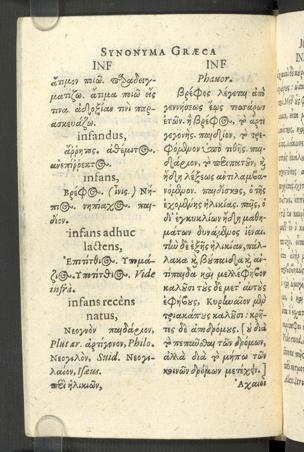 SYNONYMA GRÆCA
INF
ἄτιμον ποιῶ. παραδειγ-
ματίζω. ἄτιμα ποιῶ εἴς
τινα. ἀδοξίαν τινὶ παρ-
ασκευάζω.
infandus,
ἄρρητος. ἀθέμιτος.
infans,
Βρέφος. Νή-
πιος. νηπίαχος. παι-
δίον.
infans adhuc
lactens,
Ἐπιτίτθιος. Ὑπομά-
ζιος. Ὑποτίτθιος. Vide
infrà.
infans recèns
natus,
Νεογνὸν παιδάριον,
Plutar. ἀρτίγονον, Philo.
Νεογιλὸν, Suid. Νεογι-
λαῖον, Isæus.
περὶ ἡλικιῶν,
INF
Phauor.
Βρέφος λέγεται ἀπὸ
γεννήσεως ἕως τεσσάρων
ἐτῶν. ἢ βρέφος, τὸ ἀρτι-
γεγονός. παιδίον, τὸ τρε-
φόμενον ὑπὸ τιθῆς. παι-
δάριον, τὸ περιπατοῦν, καὶ
ἤδη λέξεως ἀντιλαμβα-
νόμενον. παιδίσκος, ὁ τῆς
ἐχομένης ἡλικίας. παῖς, ὁ
δι' ἐγκυκλίων ἤδη μαθη-
μάτων δυνάμενος ἰέναι.
τὴν δὲ ἑξῆς ἡλικίαν, πάλ-
λακα καὶ βούπαιδα καὶ ἀν-
τίπαιδα καὶ μελλέφηβον
καλοῦσι τοὺς δὲ μετ' αὐτοὺς
ἐφήβους, Κυρηναῖοι μὲν
τριακατίους καλοῦσι: κρῆ-
τες δὲ ἀποδρόμους. [οὐ διὰ
τὸ πεπαῦσθαι τῶν δρόμων,
ἀλλὰ διὰ τὸ μήπω τῶν
κοινῶν δρόμων μετέχειν.]
Ἀχαιοὶ